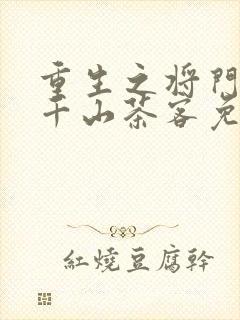 重生之将門
千山茶客免
紅燒豆腐幹